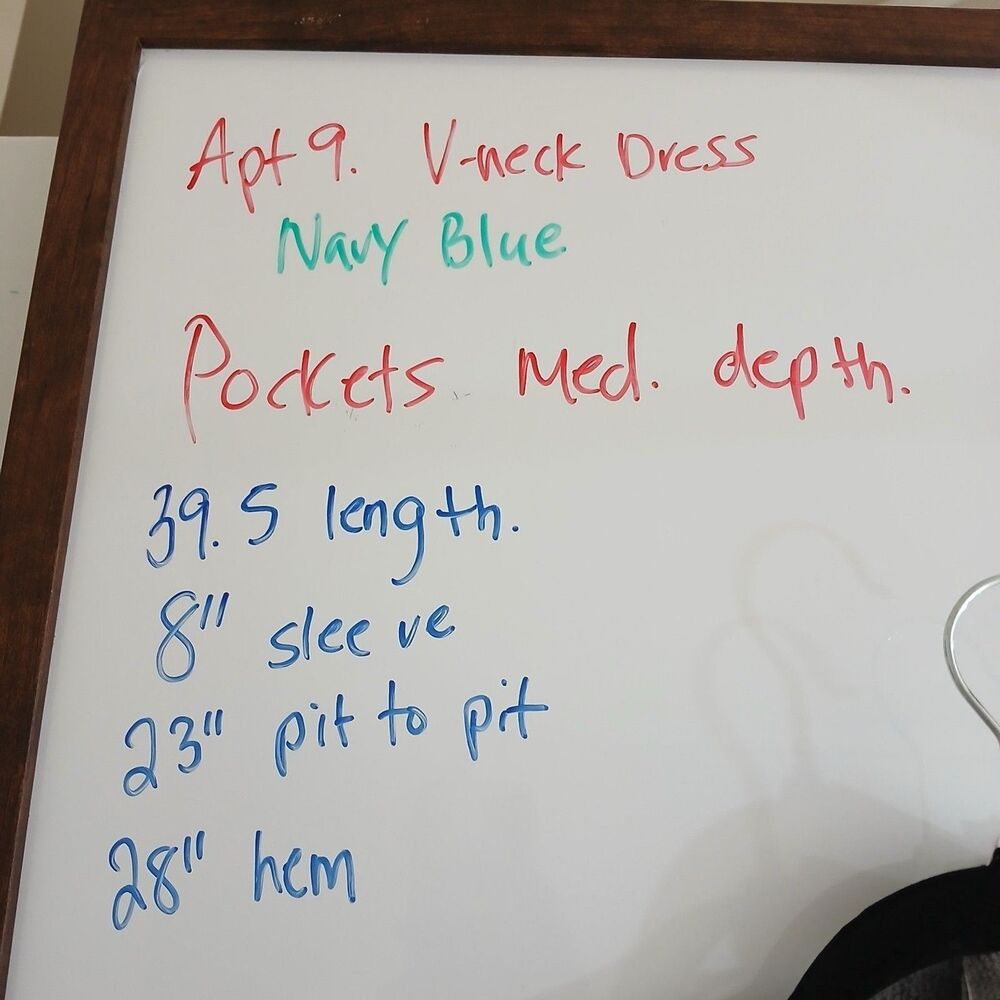 Apt 9. V-neck Dress
Navy Blue
Pockets med. depth.
39.5 length.
8" sleeve
23" pit to pit
28" hem